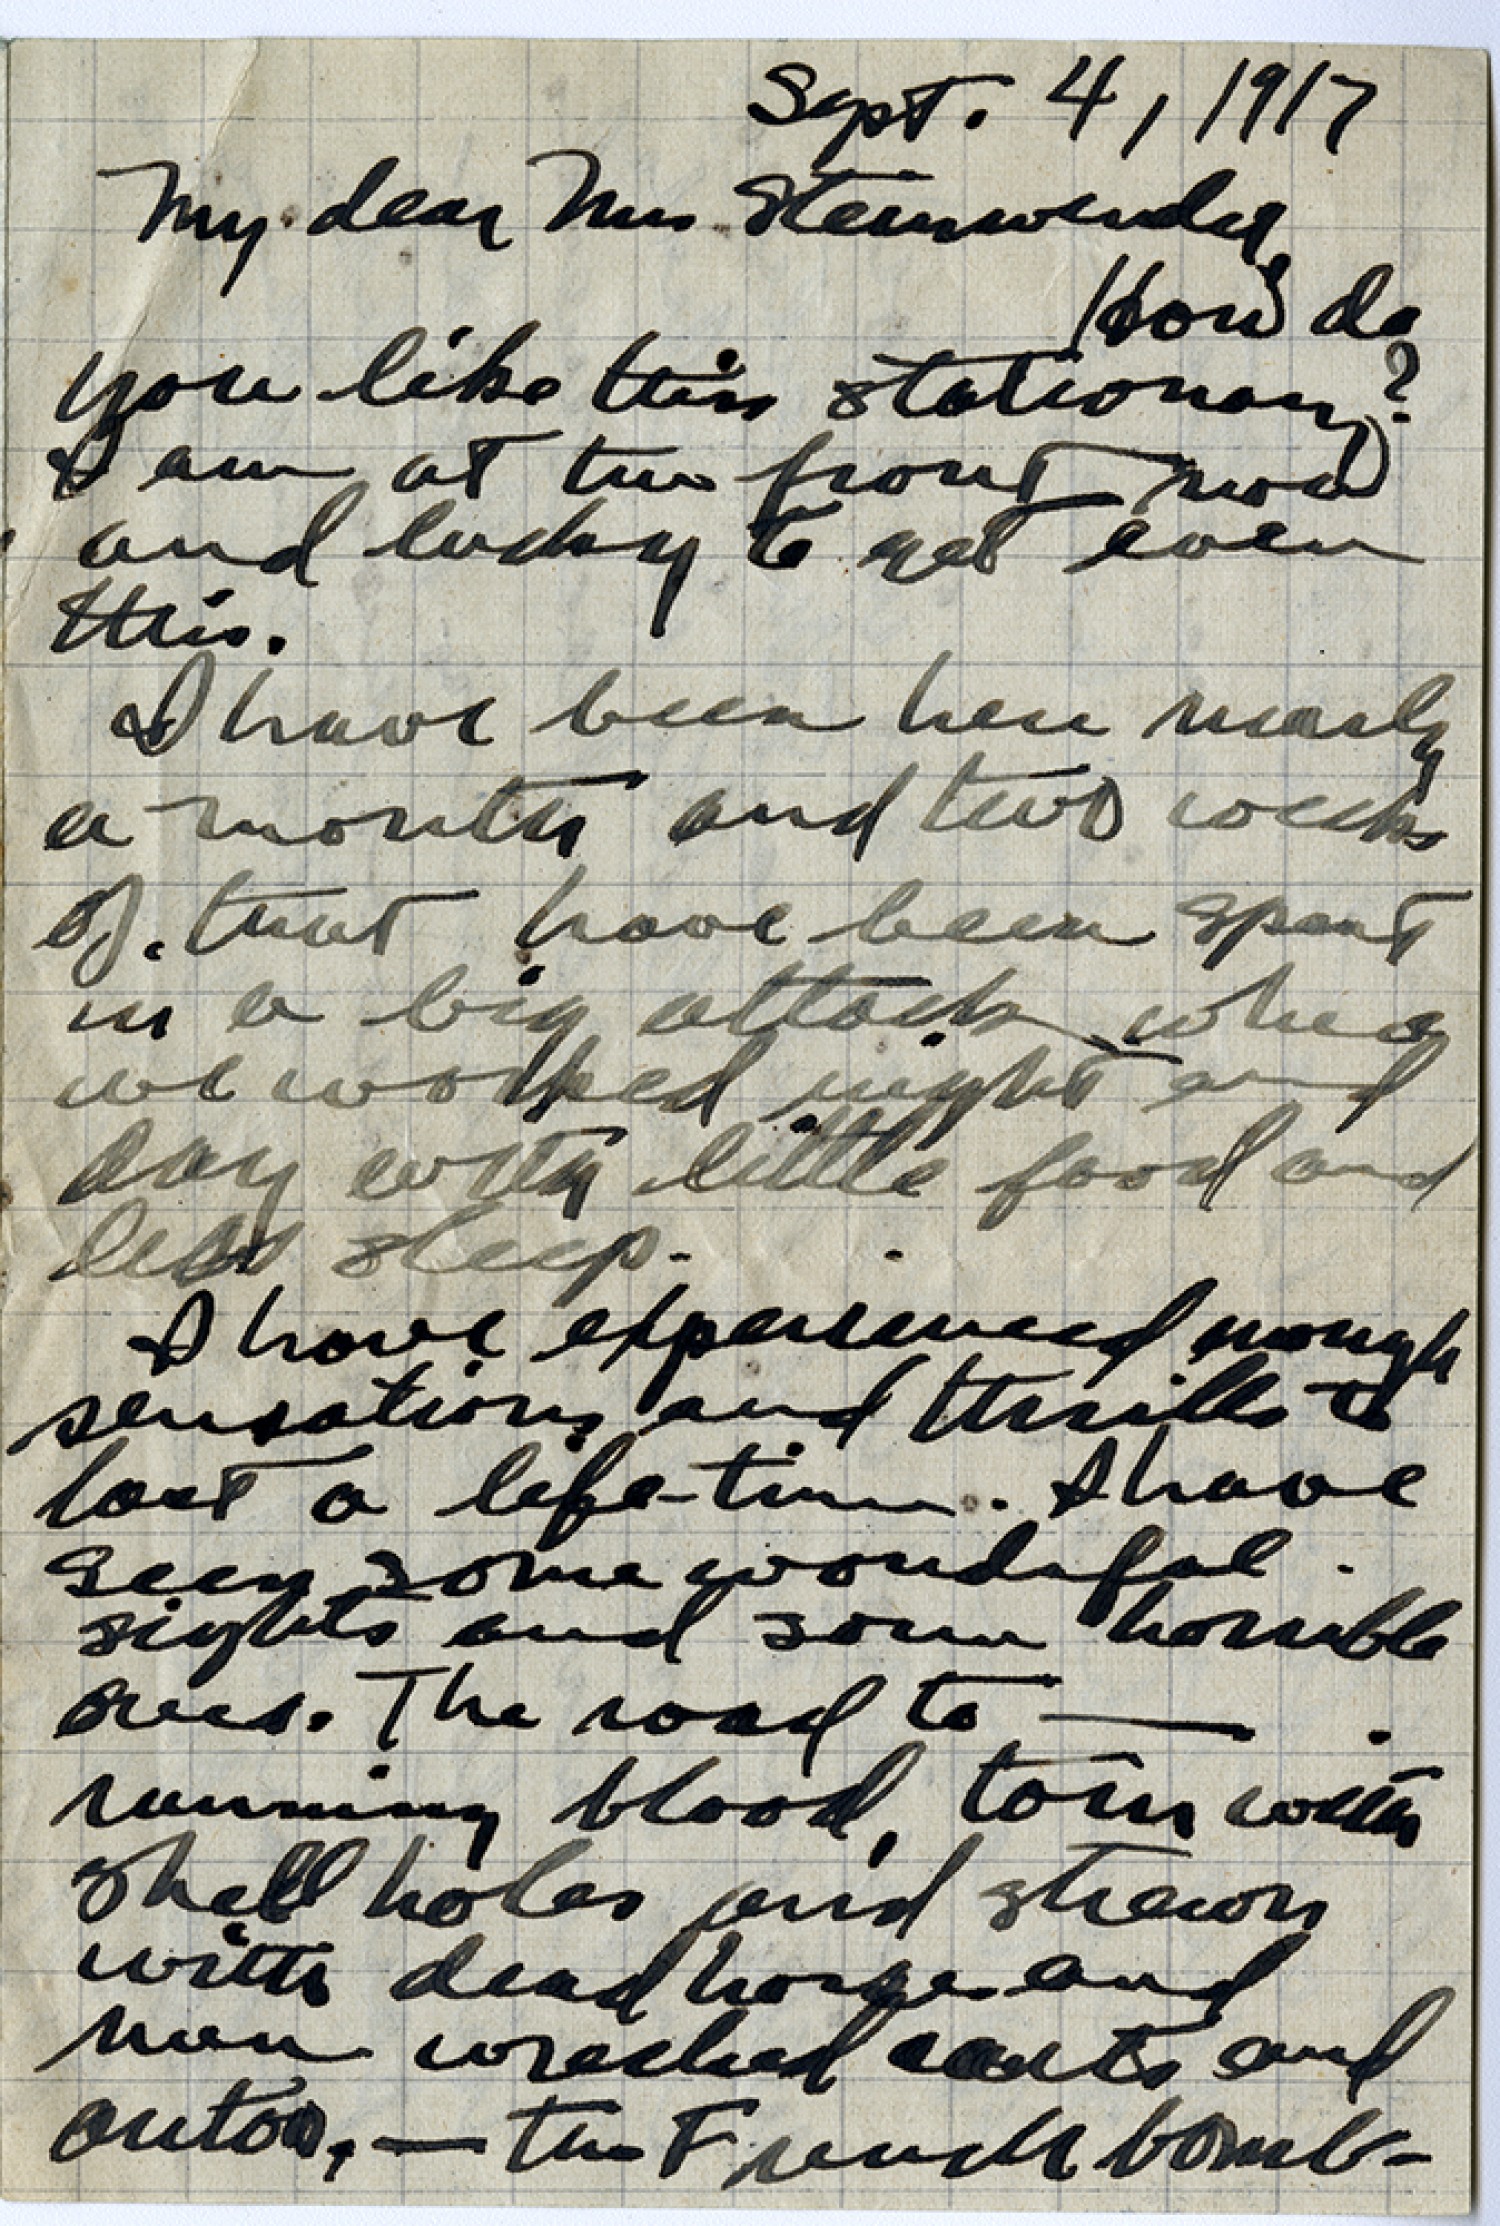 Sept. 4, 1917
My dear Mrs Steinwendy
How do
you like this stationary?
I am at the front now
and lucky to get even
this.
I have been here nearly
a month and two weeks
of that have been spent
in a big attack when
we worked night and
day with little food and
less sleep.
I have experienced enough
sensations and thrills to
last a life-time. I have
seen some wonderful
sights and some horrible
ones. The road to —
running blood, torn with
shell holes and strewn
with dead horses and
men wrecked carts and
autos, — the French bomb-